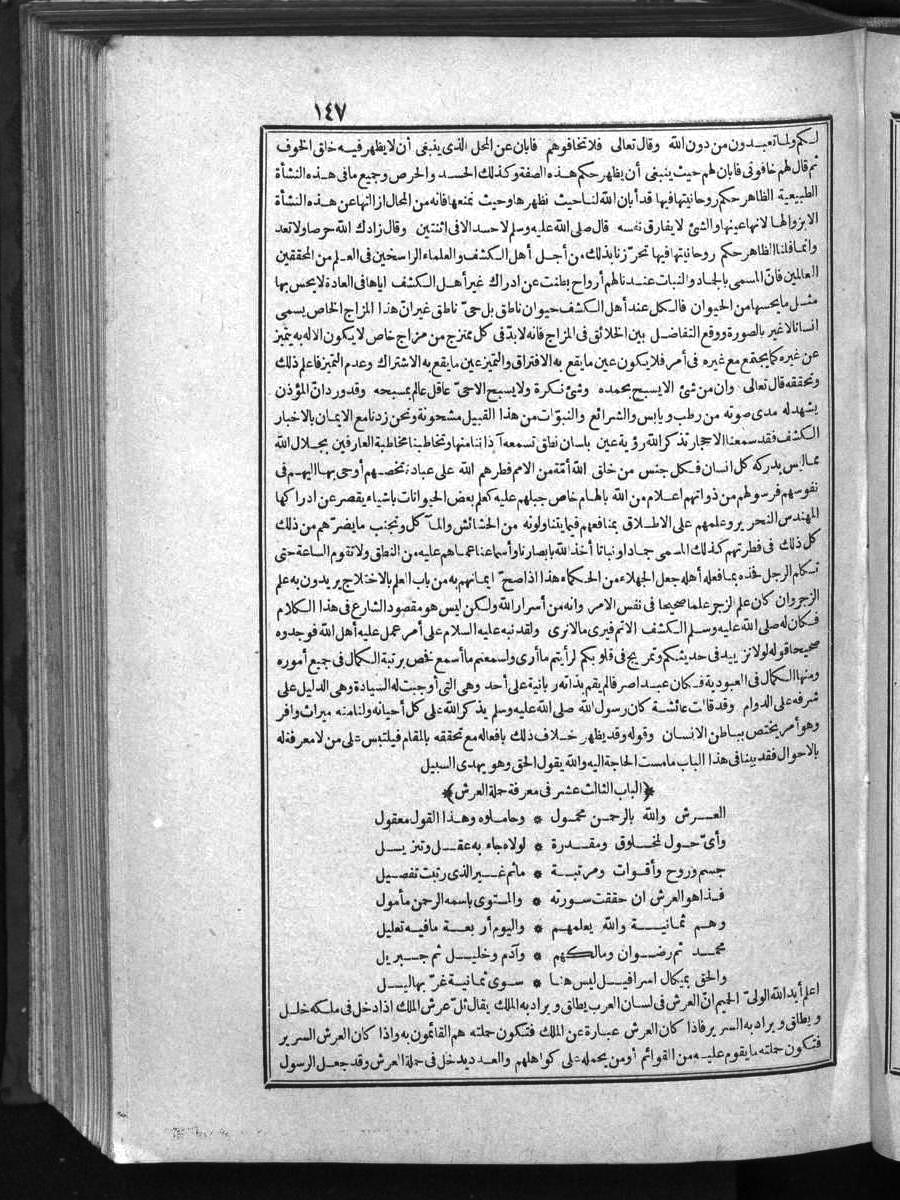 ١٤٧
لكم ولما تعبدون من دون الله وقال تعالى فلا تخافوهم فابان عن المحل الذى ينبغى أن لا يظهر فيه خلق الخوف
ثم قال لهم خافونى فابان لهم حيث ينبغى أن يظهر حكم هذه الصفة وكذلك الحسد والحرص وجميع مافى هذه النشأة
الطبيعية الظاهر حكم روحانيتها فيها قد أبان الله لنا حيث نظهرها وحيث نمنعها فانه من المحال ازالتها عن هذه النشأة
الا بزوالها لانها عينها والشئ لا يفارق نفسه قال صلى الله عليه وسلم لاحسد الا فى اثنتين وقال زادك الله حرصا ولا تعد
وانما قلنا الظاهر حكم روحانيتها فيها تحرّزنا بذلك من أجل أهل الكشف والعلماء الراسخين فى العلم من المحققين
العالمين فانّ المسمى بالجماد والنبات عندنا لهم أرواح بطنت عن ادراك غير أهل الكشف اياها فى العادة لا يحس بها
مثل ما يحسها من الحيوان فالكل عند أهل الكشف حيوان ناطق بل حىّ ناطق غير انّ هذا المزاج الخاص يسمى
انسانا لا غير بالصورة ووقع التفاضل بين الخلائق فى المزاج فانه لا بدّ فى كل ممتزج من مزاج خاص لا يكون الا له به يتميز
عن غيره كما يجتمع مع غيره فى أمر فلا يكون عين ما يقع به الافتراق والتميز عين ما يقع به الاشتراك وعدم التميز فاعلم ذلك
وتحققه قال تعالى وان من شئ الا يسبح بحمده وشئ نكرة ولا يسبح الا حىّ عاقل عالم بمسبحه وقد ورد انّ المؤذن
يشهد له مدى صوته من رطب ويابس والشرائع والنبوّات من هذا القبيل مشحونة ونحن زدنا مع الايمان بالاخبار
الكشف فقد سمعنا الاحجار تذكر الله رؤية عين بلسان نطق تسمعه آذاننا منها وتخاطبنا مخاطبة العارفين بجلال الله
مما ليس يدركه كل انسان فكل جنس من خلق الله أمّة من الامم فطرهم الله على عبادة تخصهم أوحى بها اليهم فى
نفوسهم فرسولهم من ذواتهم اعلام من الله بالهام خاص جبلهم عليه كعلم بعض الحيوانات باشياء يقصر عن ادراكها
المهندس النحرير وعلمهم على الاطلاق بمنافعهم فيما يتناولونه من الحشائش والمآكل وتجنب ما يضرّهم من ذلك
كل ذلك فى فطرتهم كذلك المسمى جمادا ونباتا أخذ الله بابصارنا وأسماعنا عماهم عليه من النطق ولا تقوم الساعة حتى
تكلم الرجل فخذه بما فعله أهله جعل الجهلاء من الحكماء هذا اذا صحّ ايمانهم به من باب العلم بالاختلاج يريدون به علم
الزجر وان كان علم الزجر علما صحيحا فى نفس الامر وانه من أسرار الله ولكن ليس هو مقصود الشارع فى هذا الكلام
فكان له صلى الله عليه وسلم الكشف الاتم فيرى ما لا نرى ولقد نبه عليه السلام على أمر عمل عليه أهل الله فوجدوه
صحيحا قوله لولا تزييد فى حديثكم وتمريج فى قلوبكم لرأيتم ما أرى ولسمعتم ما أسمع نخص برتبة الكمال فى جميع أموره
ومنها الكمال فى العبودية فكان عبدا صرفا لم يقم بذاته ربانية على أحد وهى التى أوجبت له السيادة وهى الدليل على
شرفه على الدوام وقد قالت عائشة كان رسول الله صلى الله عليه وسلم يذكر الله على كل أحيانه ولنا منه ميراث وافر
وهو أمر يختص بباطن الانسان وقوله وقد يظهر خلاف ذلك بافعاله مع تحققه بالمقام فيلتبس على من لا معرفة له
بالاحوال فقد بينا فى هذا الباب ما مست الحاجة اليه والله يقول الحق وهو يهدى السبيل
﴿الباب الثالث عشر فى معرفة حملة العرش﴾
العرش والله بالرحمن محمول * وحاملوه وهذا القول معقول
وأىّ حول لمخلوق ومقدرة * لولاه جاء به عقل وتنزيل
جسم وروح وأقوات ومرتبة * ماثم غير الذى رتبت تفصيل
فذا هو العرش ان حققت سورته * والمستوى باسمه الرحمن مأمول
وهم ثمانية والله يعلمهم * واليوم أربعة مافيه تعليل
محمد ثم رضوان ومالكهم * وآدم وخليل ثم جبريل
والحق بميكال اسرافيل ليس هنا * سوى ثمانية غرّ بهاليل
اعلم أيد الله الولىّ الحميم انّ العرش فى لسان العرب يطلق ويراد به الملك يقال ثلّ عرش الملك اذا دخل فى ملكه خلل
ويطلق ويراد به السرير فاذا كان العرش عبارة عن الملك فتكون حملته هم القائمون به واذا كان العرش السرير
فتكون حملته ما يقوم عليه من القوائم أو من يحمله على كواهلهم والعدد يدخل فى حملة العرش وقد جعل الرسول